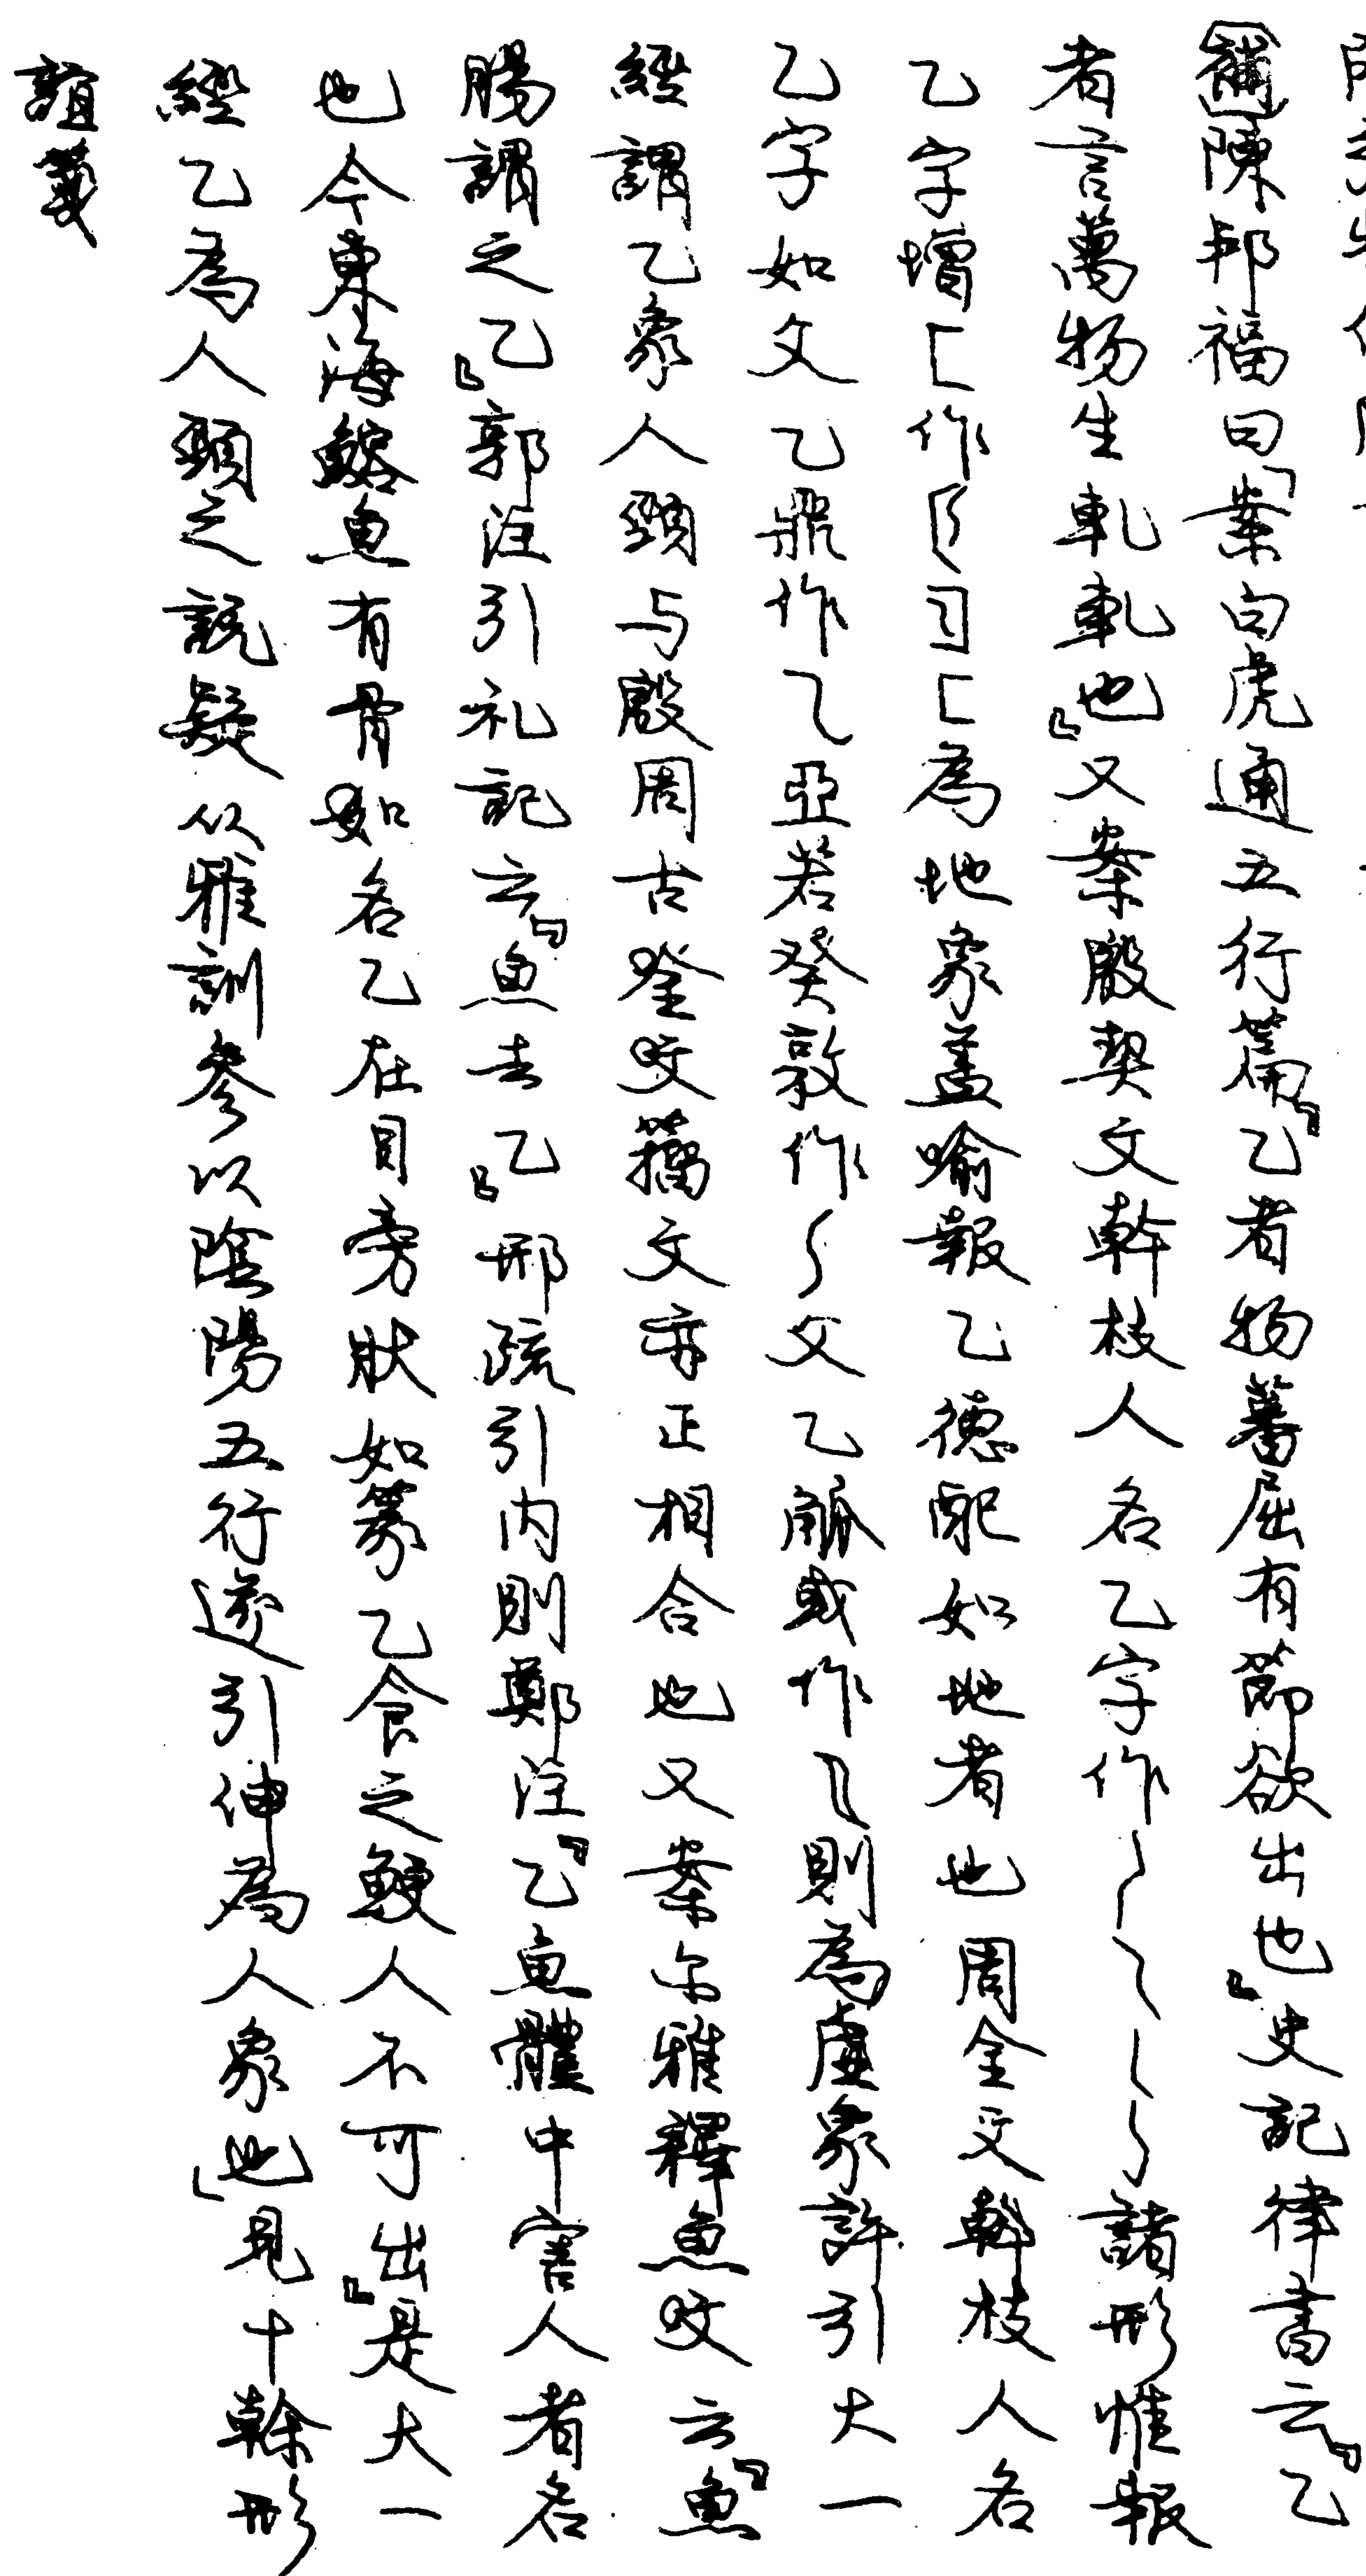 補陳邦福曰「案白虎通五行篇『乙者物蕃屈有節欲出也』史記律書云『乙
者言萬物生軋軋也』又案殷契文幹枝人名乙字作諸形惟報
乙字增匚作匚為地象蓋喻報乙德配如地者也周金文幹枝人名
乙字如文乙鼎作亞若癸敦作父乙觚或作則為虛象許引大一
經謂乙象人頸与殷周古籀文亦正相合也又案尔雅釋魚云『魚
腸謂之乙』郭注引礼記云『魚去乙』邢疏引内則鄭注『乙魚體中害人者名
也今東海鰫魚有骨如名乙在目旁狀如篆乙食之鯁人不可出』是大一
經乙為人頸之說疑从雅訓參以陰陽五行遂引伸為人象也」見十榦形
誼箋